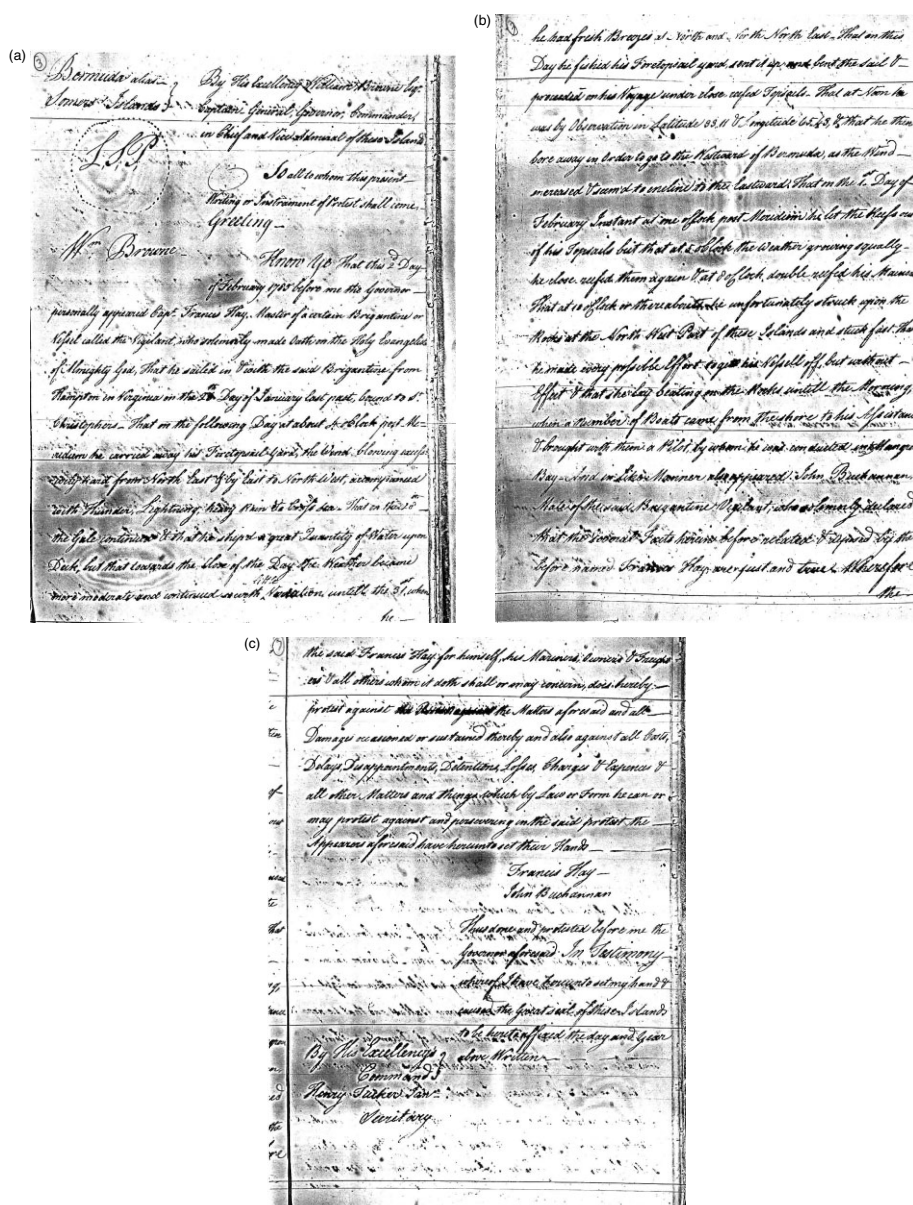 (a)
3
Bermuda alias
Somers Islands
By His Excellency William Browne Esqr
Captain General, Governor, Commander
in Chief and Vice Admiral of these Island
L.S.P
To all to whom this present
Writing or Instrument of Protest shall come
Greeting
Wm Browne
Know Ye That this 2d Day
of February 1785 before me the Governor
personally appeared Capt. Francis Hay, Master of a certain Brigantine or
Vessel called the Vigilant, who solemnly made Oath on the Holy Evangelies
of Almighty God, That he sailed in & with the said Brigantine from
Hampton in Virginia in the Day of January last past, bound to St
Christophers That on the following Day at about 4 o Clock post Me-
ridian he carried away his Foretopsail Yard, the Wind blowing excess
hard from North East & by East to North West, accompanied
with Thunder, Lightning, heavy Rain & Sea. That on the
the Gale continued & that he shipd a great Quantity of Water upon
Deck, but that towards the Close of the Day the Weather became
little
more moderate and continued so with Variation untill the 31st when
he
(b)
he had fresh Breezes at North and North North East. That on this
Day he fished his Foretopsail yard, sent it up, and bent the sail &
proceeded on his Voyage under close reefed Topsails. That at Noon he
was by Observation in Latitude 33,11 & Longitude that he then
bore away in Order to go to the Westward of Bermuda, as the Wind
increased & seem'd to encline to the Eastward. That on the 1st Day of
February Instant at one oClock post Meridian he let the Reefs out
of his Topsails but that at 2 oClock the Weather growing squally
he close reefed them again & at 8 oClock double reefed his Mainsa
That at 10 oClock or thereabouts he unfortunately struck upon the
Rocks at the North West Part of these Islands and stuck fast. That
he made every possible Effort to get his Vessell off, but without
Effect & that she lay beating on the Rocks untill the Morning
when a Number of Boats came from the shore to his Assistan
& brought with them a Pilot, by whom he was conducted into Mangro
Bay And in Like Manner also appeared John Buchannan
Mate of the said Brigantine Vigilant, who solemnly declared
that the several Facts herein before related & deposed by the
before named Francis Hay, are just and true. Wherefore
the
(c)
the said Francis Hay for himself, his Mariners, Owners & Freigh
ers & all others whom it doth shall or may concern, does hereby
protest against the Matters aforesaid and all
Damages occasioned or sustained thereby and also against all Costs,
Delays, Disappointments, Detentions, Losses, Charges & Expences &
all other Matters and things which by Law or Form he can or
may protest against and persevering in the said protest the
Appearers aforesaid have hereunto set their Hands
Francis Hay
John Buchannan
Thus done and protested before me the
Governor aforesaid In Testimony
whereof I have hereunto set my hand &
caused the Great seal of these Islands
to be hereto affixed the day and Year
above Written
By His Excellency's
Command
Henry Tucker Jun
Secritary